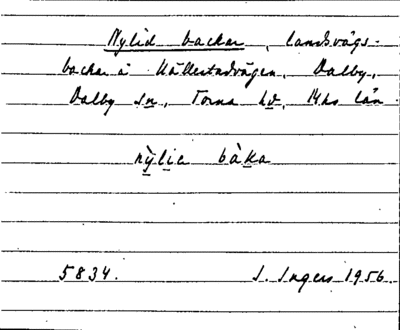 Nylid backar, landsvägs-
backar å Hällestadvägen, Dalby,
Dalby sn, Torna hd, Mhs län.
nỳlia bàka
5834. I. Ingers 1956